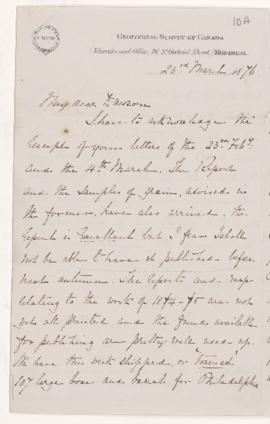 10A
GEOLOGICAL SURVEY OF CANADA
Museum and Office, 76 St. Gabriel Street, MONTREAL
23rd March 1876
My dear Dawson
I have to acknowledge the
receipt of your letters of the 23rd Feby.
and the 4th March. The Report
and the samples of grain, advised in
the former, have also arrived. The
report is Excellent but I fear I shall
not be able to have it published before
next autumn. The reports and map
relating to the work of 1874-75 are not
yet all printed and the funds available
for publishing are pretty well used up.
We have this week shipped, or "trained"
107 large boxes and barrels for Philadelphia